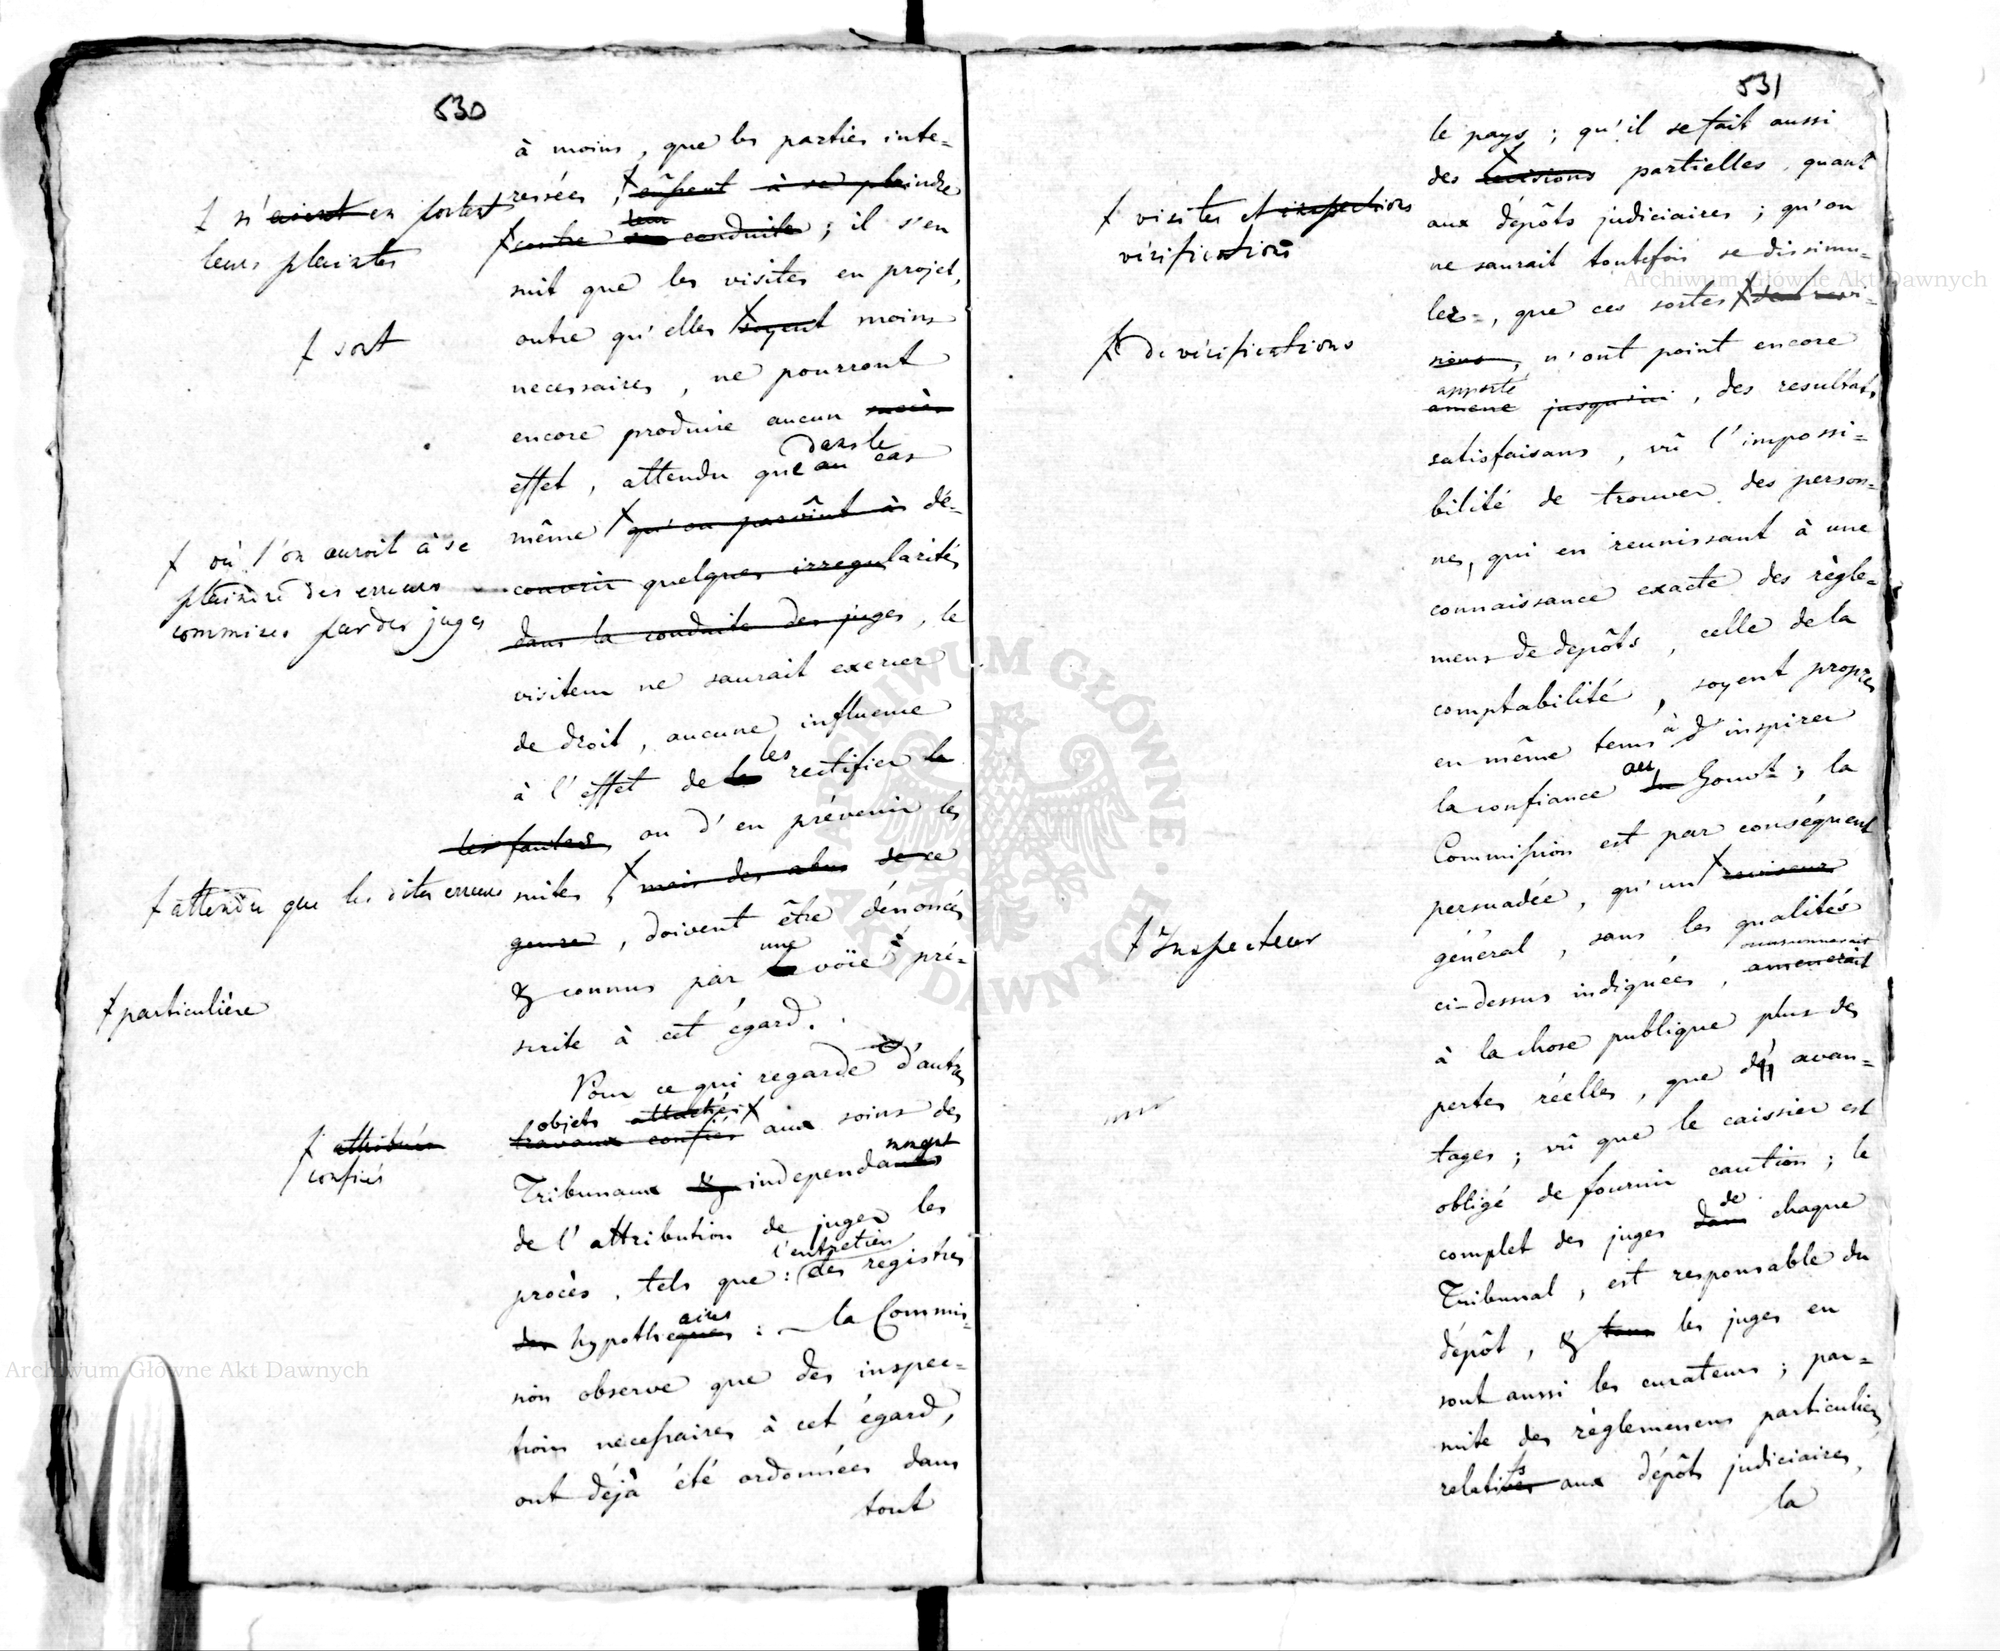 530
à moins, que les parties inte-
ressées, ⨍ eussent à se plaindre
⨍ n'aient en portent
leurs plaintes
⨍ contre leur conduite; il s'en
suit que les visites en projet,
outre qu'elles ⨍ soyent moins
⨍ sont
necessaires, ne pourront
encore produire aucun succès
effet, attendu que au dans le cas
même ⨍ qu'on parvînt à dé-
⨍ où l'on auroit à se
plaindre des erreurs
commises par des juges
couvrir quelques irregularités
dans la conduite des juges, le
visiteur ne saurait exercer
de droit, aucune influence
à l'effet de les rectifier
les fautes, ou d'en prévenir les
suites, ⨍ mais des abus de ce
⨍ attendu que les dites erreurs
genre, doivent être dénoncés
& connus par une voie ⨍ pré-
⨍ particulière
scrite à cet égard.
Pour ce qui regarde d'autres
objets attachés ⨍
travaux confiés aux soins des
⨍ attribués
confiés
Tribunaux & independamment
de l'attribution de juger les
procès, tels que: l'entretien des registres
des hypothécaires: — la Commis-
sion observe que des inspec-
tions necessaires à cet égard,
ont déjà été ordonnées dans
tout
531
le pays; qu'il se fait aussi
des ⨍ revisions partielles, quant
⨍ visites et inspections
vérifications
aux dépôts judiciaires; qu'on
ne saurait toutefois se dissimu-
ler, que ces sortes ⨍ de revi-
⨍ de vérifications
sions, n'ont point encore
apporté
amené jusqu'ici, des resultats
satisfaisans, vû l'impossi-
bilité de trouver des person-
nes, qui en reunissant à une
connaissance exacte des règle-
mens de depôts, celle de la
comptabilité, soyent propres
en même tems à d'inspirer
la confiance au Gouvt; la
Commission est par conséquent
persuadée, qu'un ⨍ reviseur
⨍ Inspecteur
général, sans les qualités
ci-dessus indiquées, occasionnerait
amenerait
à la chose publique plus de
pertes réelles, que d' avan-
tages; vû que le caissier est
obligé de fournir caution; le
complet des juges dans de chaque
Tribunal, est responsable du
dépôt, & tous les juges en
sont aussi les curateurs; par
suite des règlemens particuliers
relatifs aux dépôts judiciaires,
la
Archiwum Główne Akt Dawnych
Archiwum Główne Akt Dawnych
ARCHIWUM GŁÓWNE • AKT DAWNYCH